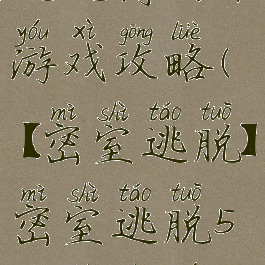 yóu xì gōng lüè
游戏攻略(
mì shì táo tuō
【密室逃脱】
mì shì táo tuō
密室逃脱5